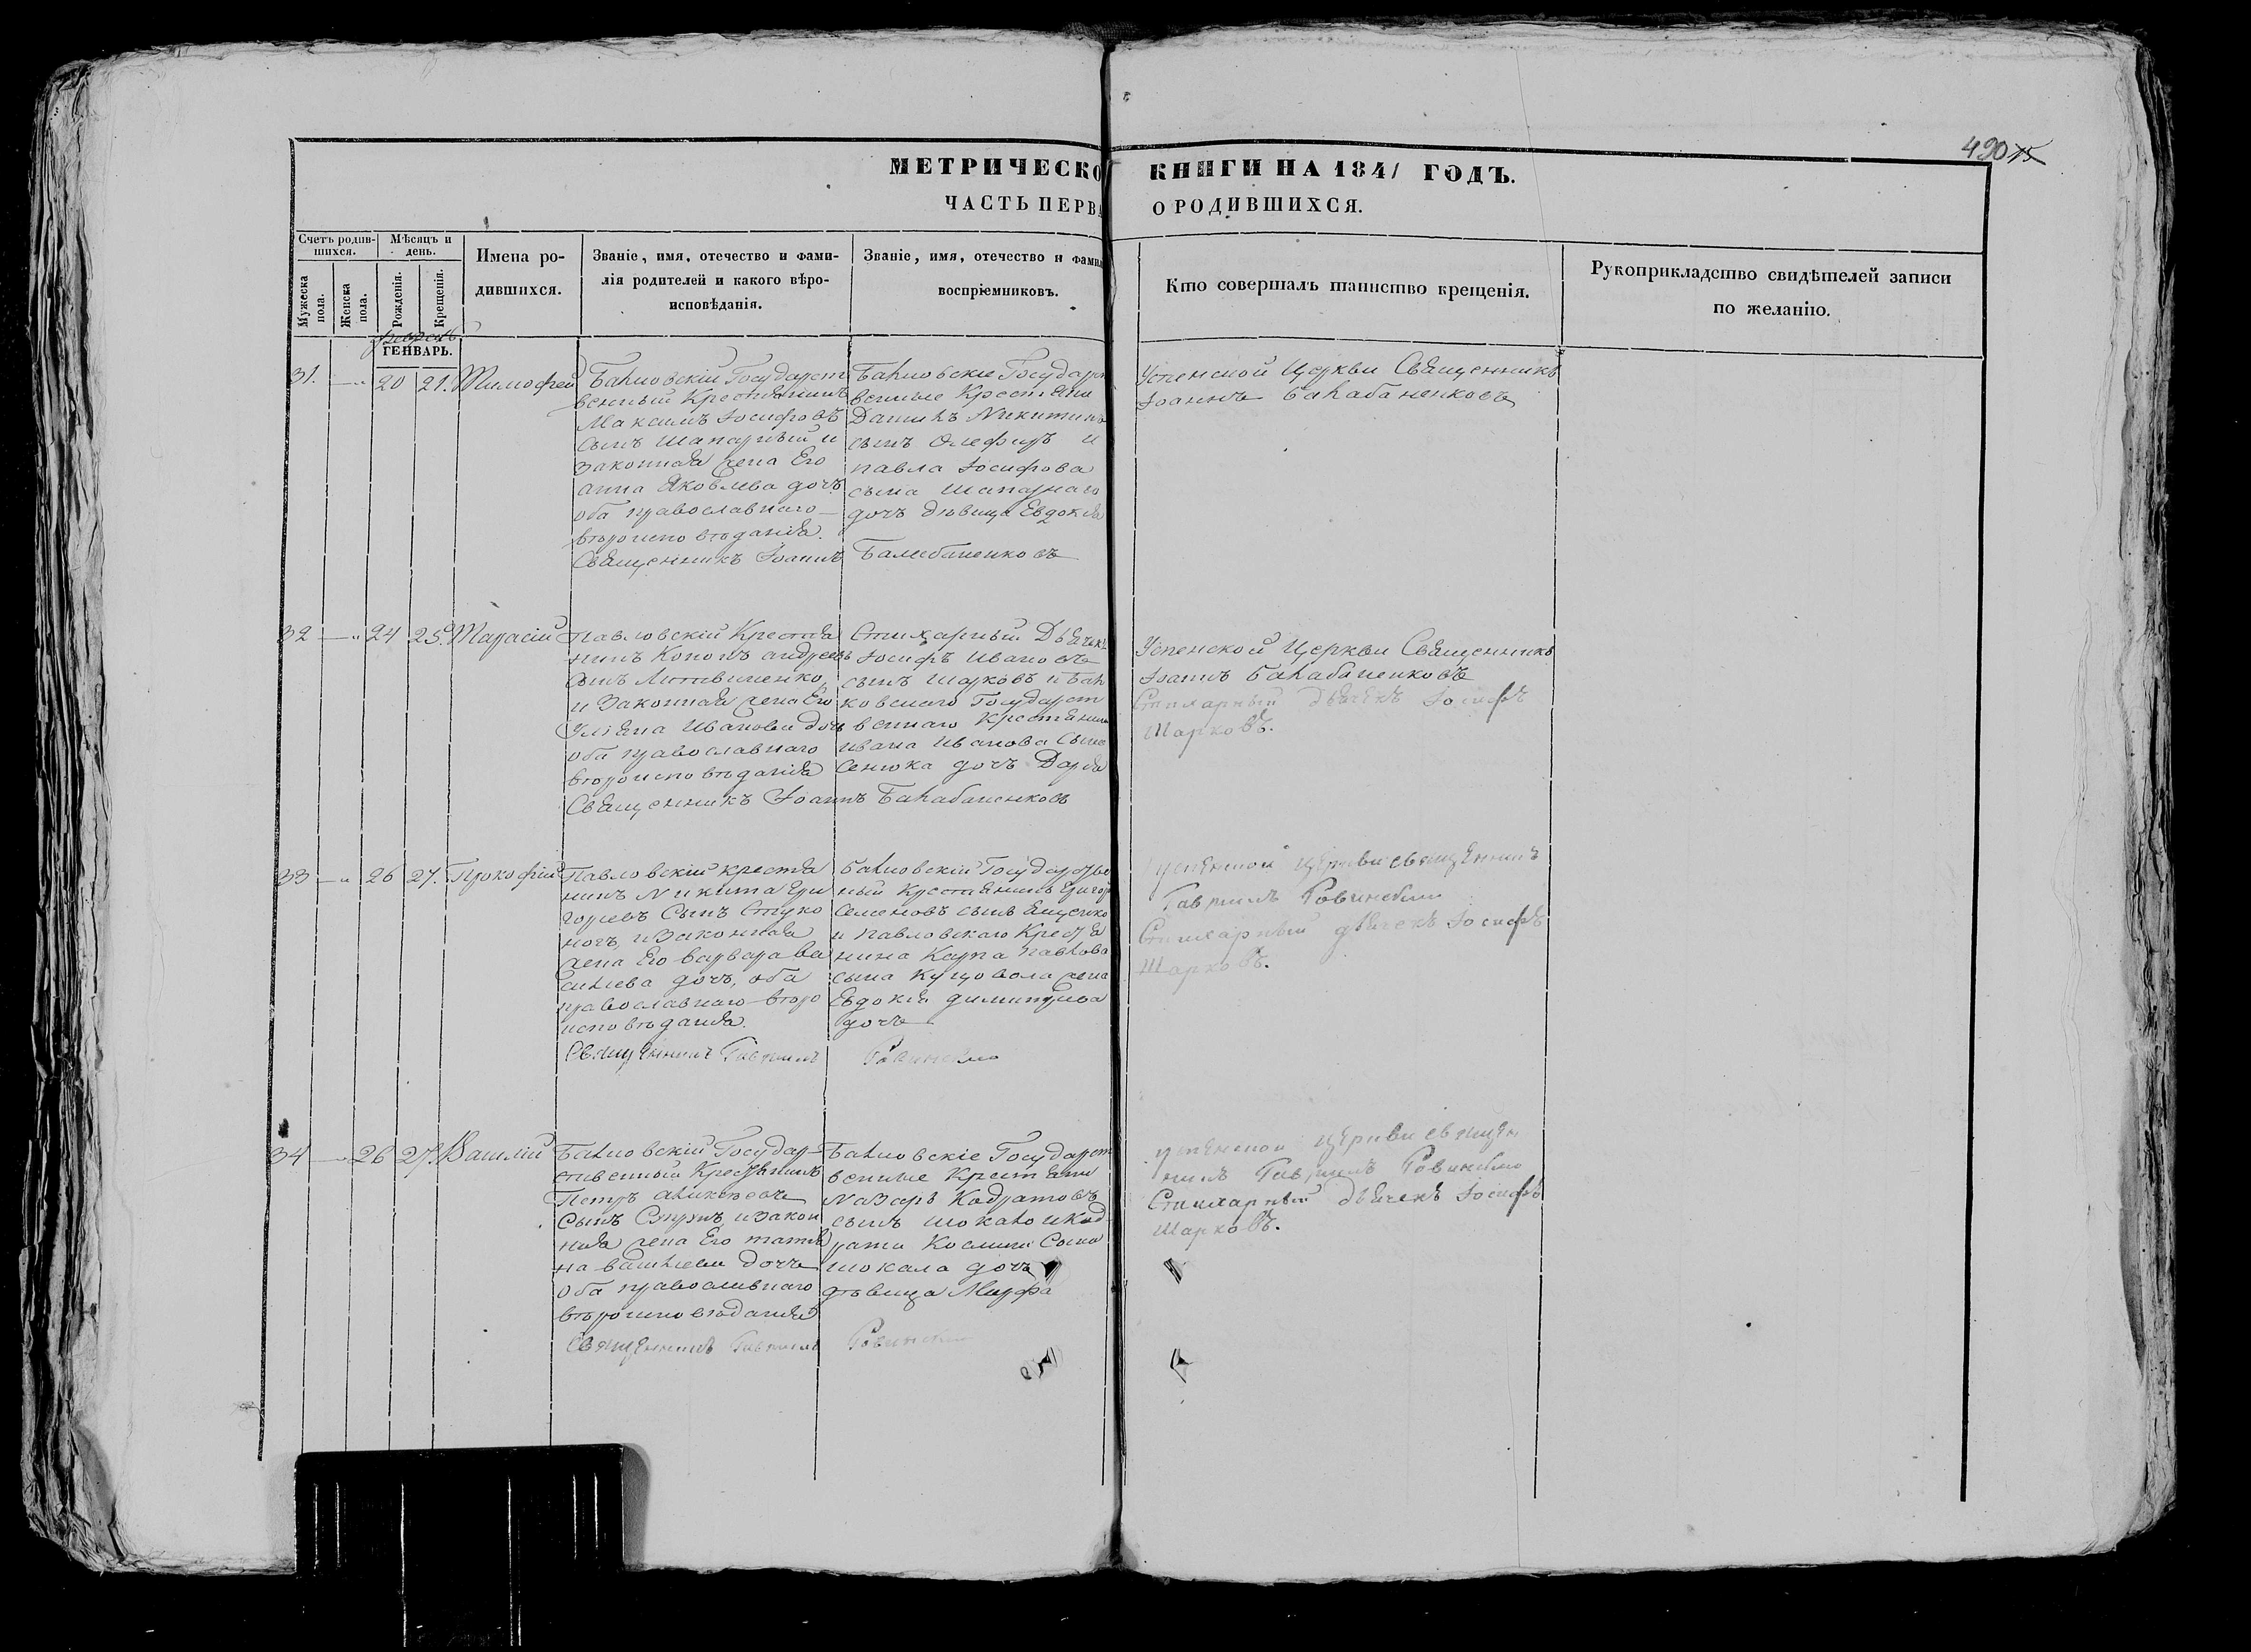 490 15
МЕТРИЧЕСКО КНИГИ НА 1841 ГОДЪ.
ЧАСТЬ ПЕРВА О РОДИВШИХСЯ.
Счетъ родив-
шихся.
Мужеска
пола.
Женска
пола.
Мѣсяцъ и
день.
Рожденія.
Крещенія.
Имена ро-
дившихся.
Званіе, имя, отечество и фами-
лія родителей и какого вѣро-
исповѣданія.
Званіе, имя, отечество и фами
воспріемниковъ.
Кто совершалъ таинство крещенія.
Рукоприкладство свидѣтелей записи
по желанію.
ГЕНВАРЬ.
31. 20 21. Тимофей
Государст
венный Крестянинъ
Максимъ Іосифовъ
сынъ Шапарный и
законная жена Его
анна Яковлева дочь
оба православнаго
вѣроисповѣданія.
Священникъ Іоаннъ Балабаненковъ
Государ
венные Крестяни
Никитинъ
сынъ и
павла Іосифова
сына Шапарнаго
дочь дѣвица Евдокія
Успенской Церкви Священникъ
Іоаннъ Балабаненковъ
32 24 25. Тарасій
Павловскій Крестья
нинъ Кононъ андреевъ
сынъ Литвиненко,
и Законная жена Его
Иванова дочь
оба православнаго
вѣроисповѣданія
Священникъ Іоаннъ Балабаненковъ
Стихарный Дьячекъ
Іосифъ Ивановъ
сынъ Шарковъ и Бал
ковскаго Государст
веннаго Крестянина
Ивана Иванова сына
Сенюка дочь Дарья
Успенской Церкви Священникъ
Іоаннъ Балабаненковъ
Стихарный дьячекъ Іосифъ
Шарковъ.
33 26 27. Прокофій
Павловскій крестья
нинъ Никита Гри
горьевъ Сынъ Стуко
ногъ, и Законная
жена Его варвара Ва
силиева дочь, оба
православнаго вѣро
исповѣданія.
Священникъ Гавриилъ Ровинскій
Государстве
ный Крестьянинъ Григор
Семеновъ сынъ Ященко
и Павловскаго Крестья
нина Карпа Павлова
сына жена
Евдокія димитриева
дочь
Успенской Церкви священникъ
Гавриилъ Ровинскій
Стихарный дьячекъ Іосифъ
Шарковъ.
34 26 27. Василій
Государ-
ственный Крестьянинъ
Петръ
Сынъ и Закон
ная жена Его татья
на василиева дочь
оба православнаго
вѣроисповѣданія
Священникъ Гавриилъ Ровинскій
Государст
венные Крестьяни
Назаръ Кодратовъ
сынъ Шокало и Код
рата Космина Сына
Шокала дочь
дѣвица Марфа
Успенской Церкви священ
никъ Гавриилъ Ровинскій
Стихарный дьячекъ Іосифъ
Шарковъ.